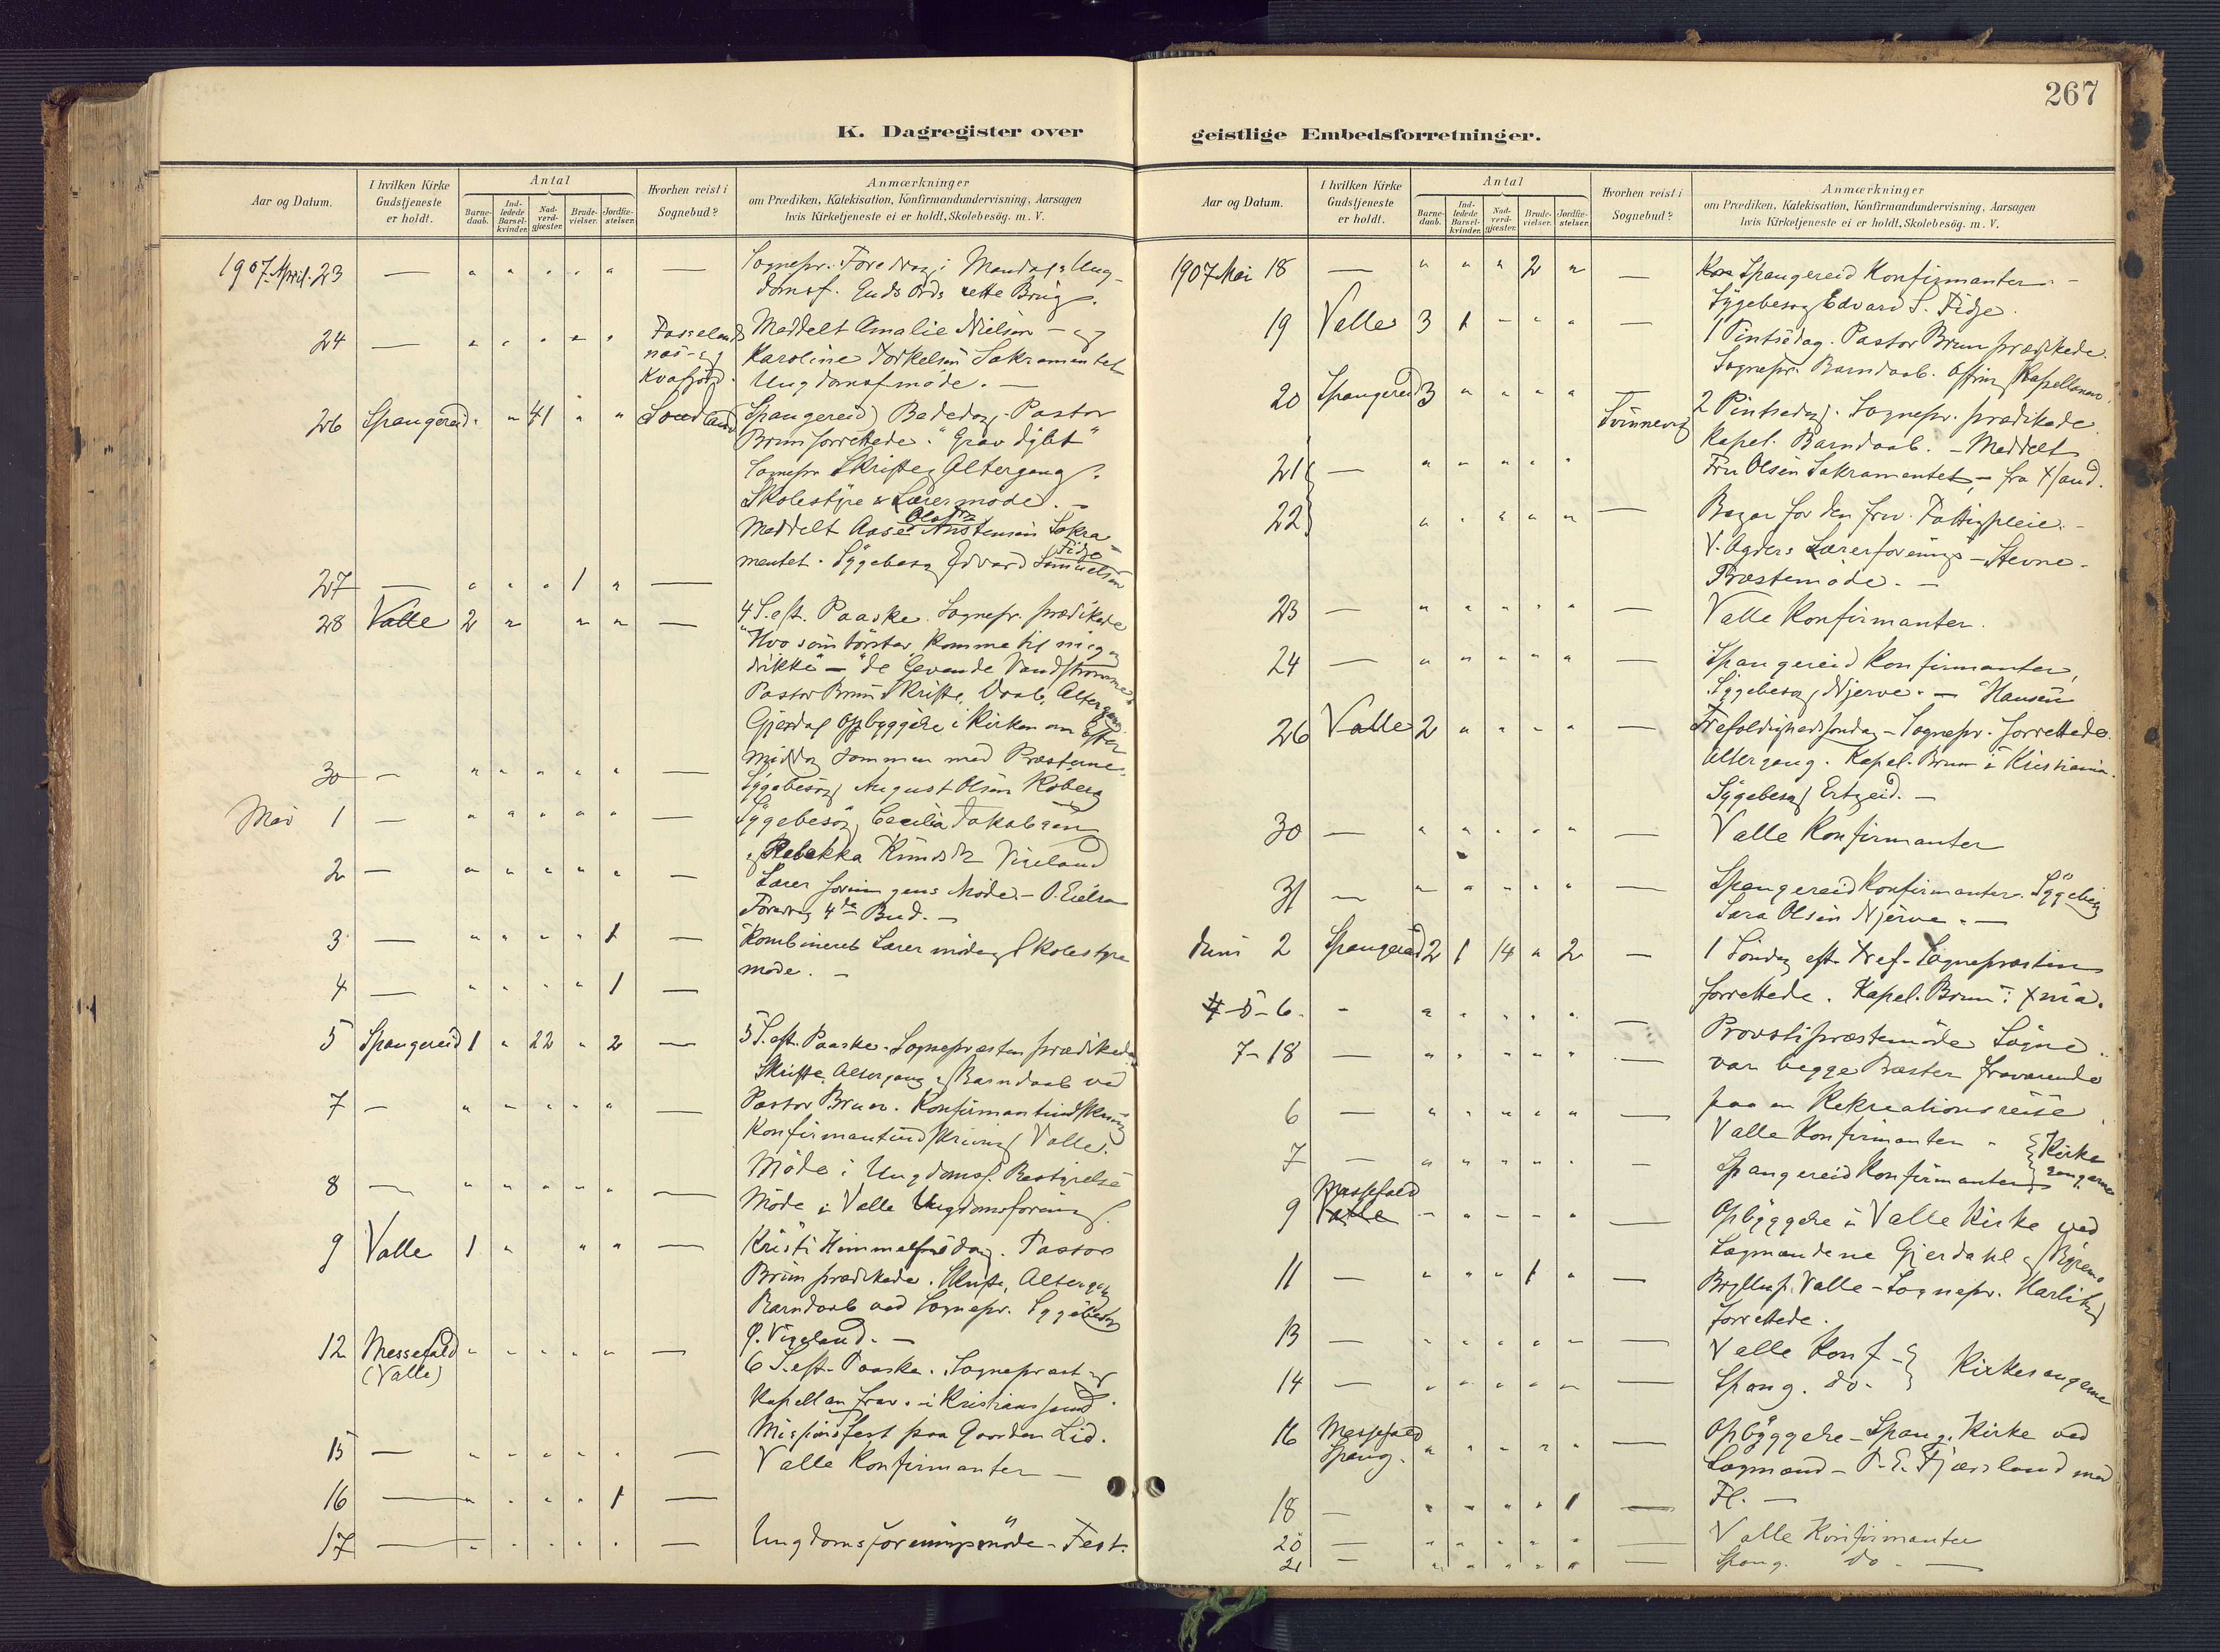 267
K. Dagregister over
geistlige Embedsforretninger.
Aar og Datum.
I hvilken Kirke Gudstjeneste er holdt.
Antal
Barne-daab.
Ind-ledede Barsel-kvinder.
Nad-verd-gjæster.
Brude-vielser.
Jordfæ-stelser.
Hvorhen reist i Sognebud?
Anmærkninger
om Prædiken, Katekisation, Konfirmandundervisning, Aarsagen
hvis Kirketjeneste ei er holdt, Skolebesøg. m. V.
1907 April 23 — " " " " " — Sognepr. Foredrag i Mandals Ung-
domsf. Guds Ords rette Brug.
24 — " " " " " Meddelt Amalie Nielsen — og
Karoline Torkelsen Sakramentet
Ungdomsmøde. —
26 Spangereid " " 41 " " Spangereid Bededag. Pastor
Brun forrettede. "Grav dybt"
Sognepr Skrifte og Altergang.
Skolestyre & Lærermøde. —
Meddelt Aase Sakra-
mentet. Sygebesøg Edvard Samuelsen
Fidje
27 — " " " 1 " —
28 Valle 2 " " " — 4 S. eft. Paaske. Sognepr. prædikede
"Hvo som tørster, komme til mig og
drikke" — "de levende Vandstrømme"
Pastor Brun Skrifte, Daab, Altergang
Gjerdal Opbyggelse i Kirken om Efter
middag sammen med Præsterne.
30 — " " " " " — Sygebesøg August Olsen
Mai 1 — " " " " " — Sygebesøg Cecilia Jakobsen
og Rebekka Vigeland
2 — " " " " " — Lærerforeningens Møde. —
Foredrag 4de Bud. —
3 — " " " " 1 — Kombineret Lærermøde og Skolestyre
møde. —
4 — " " " " 1 —
5 Spangereid 1 " 22 " 2 — 5 S. eft. Paaske. Sognepræsten prædikede
Skrifte, Altergang & Barndaab ved
Pastor Brun. Konfirmantindskrivning
7 — " " " " " — Konfirmantindskrivning Valle.
Møde i Ungdomsf. Bestyrelse
8 — " " " " " — Møde i Valle Ungdomsforening.
9 Valle 1 " " " — Kristi Himmelfartsdag. Pastor
Brun prædikede. Skrifte, Altergang
Barndaab ved Sognepr. Sygebesøg
Vigeland. —
12 Messefald " " " " " — 6 S. eft. Paaske. Sognepræst og
(Valle)
Kapellan frav. i Kristianssand.
Missionsfest paa Gaarden Lid.
15 — " " " " " — Valle Konfirmanter —
16 — " " " " 1 —
17 — " " " " " — Ungdomsforeningsmøde — Fest.
Aar og Datum.
I hvilken Kirke Gudstjeneste er holdt.
Antal
Barne-daab.
Ind-ledede Barsel-kvinder.
Nad-verd-gjæster.
Brude-vielser.
Jordfæ-stelser.
Hvorhen reist i Sognebud?
Anmærkninger
om Prædiken, Katekisation, Konfirmandundervisning, Aarsagen
hvis Kirketjeneste ei er holdt, Skolebesøg. m. V.
1907 Mai 18 — " " " 2 " — Spangereid Konfirmanter. —
Sygebesøg Edvard S. Fidje.
19 Valle 3 1 — " " — 1 Pintsedag. Pastor Brun prædikede.
Sognepr. Barndaab. Kapellanen.
20 Spangereid 3 " " " " — 2 Pintsedag. Sognepr. prædikede
Kapel. Barndaab. — Meddelt
Fru Olsen Sakramentet, — fra
21 — " " " " "
22 " " " " " — Bazar for den friv. Fattigpleie. —
V. Agders Lærerforenings — Stevne.
Præstemøde. —
23 — " " " " " — Valle Konfirmanter.
24 — " " " " " — Spangereid Konfirmanter,
Sygebesøg Njerve. — Hansen
26 Valle 2 " " " " — Trefoldighedssøndag — Sognepr. forrettede.
Altergang. Kapel. Brun i Kristiania.
Sygebesøg Ertzeid. —
30 — " " " " " — Valle Konfirmanter
31 — " " " " " — Spangereid Konfirmanter. Sygebesøg
Sara Olsen Njerve. —
Juni 2 Spangereid 2 1 14 " 2 — 1 Søndag eft. Tref. Sognepræsten
forrettede. Kapel. Brun i Xnia.
4-5-6. - " " " " " — Provstipræstemøde Søgne.
7-18 — " " " " " — var begge Præster fraværende
paa en Rekreationsreise
6 — " " " " " — Valle Konfirmanter
7 — " " " " " — Spangereid Konfirmanter
Kirkesangerne
9 Messefald
Valle — " " " " — Opbyggelse i Valle Kirke ved
Lægmændene Gjerdahl og
11 — " " " 1 " — Bryllup. Valle — Sognepr.
forrettede.
13 — " " " " " — Valle Konf —
14 — " " " " " — Spang. do. Kirkesangerne
16 Messefald
Spang. " " " " " — Opbyggelse — Spang. Kirke ved
Lægmænd — med
Fl. —
18 — " " " " 1 —
20 — " " " " " — Valle Konfirmanter
21 — " " " " " — Spang. do —